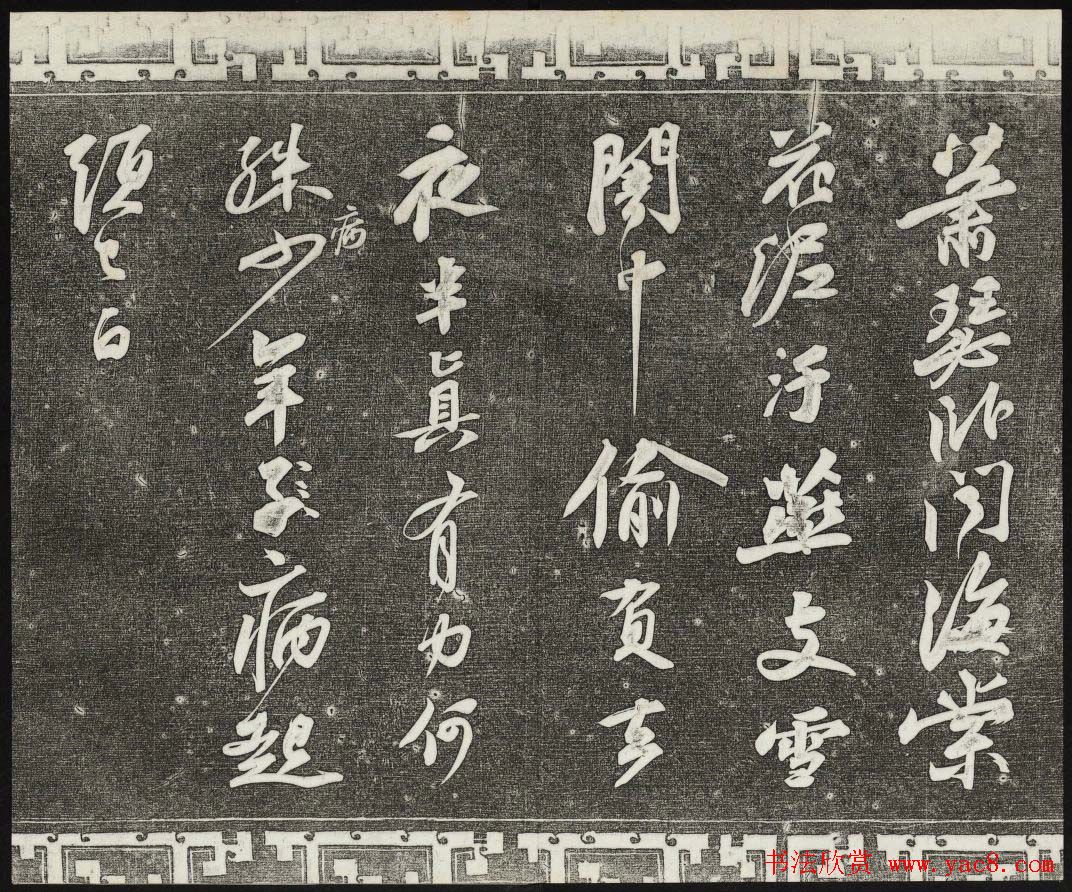 蕭瑟卧聞海棠
花泥汙燕支雪
闇中偷負去
夜半眞有力何
殊病少年子病起
頭已白
书法欣赏 www.yac8.com